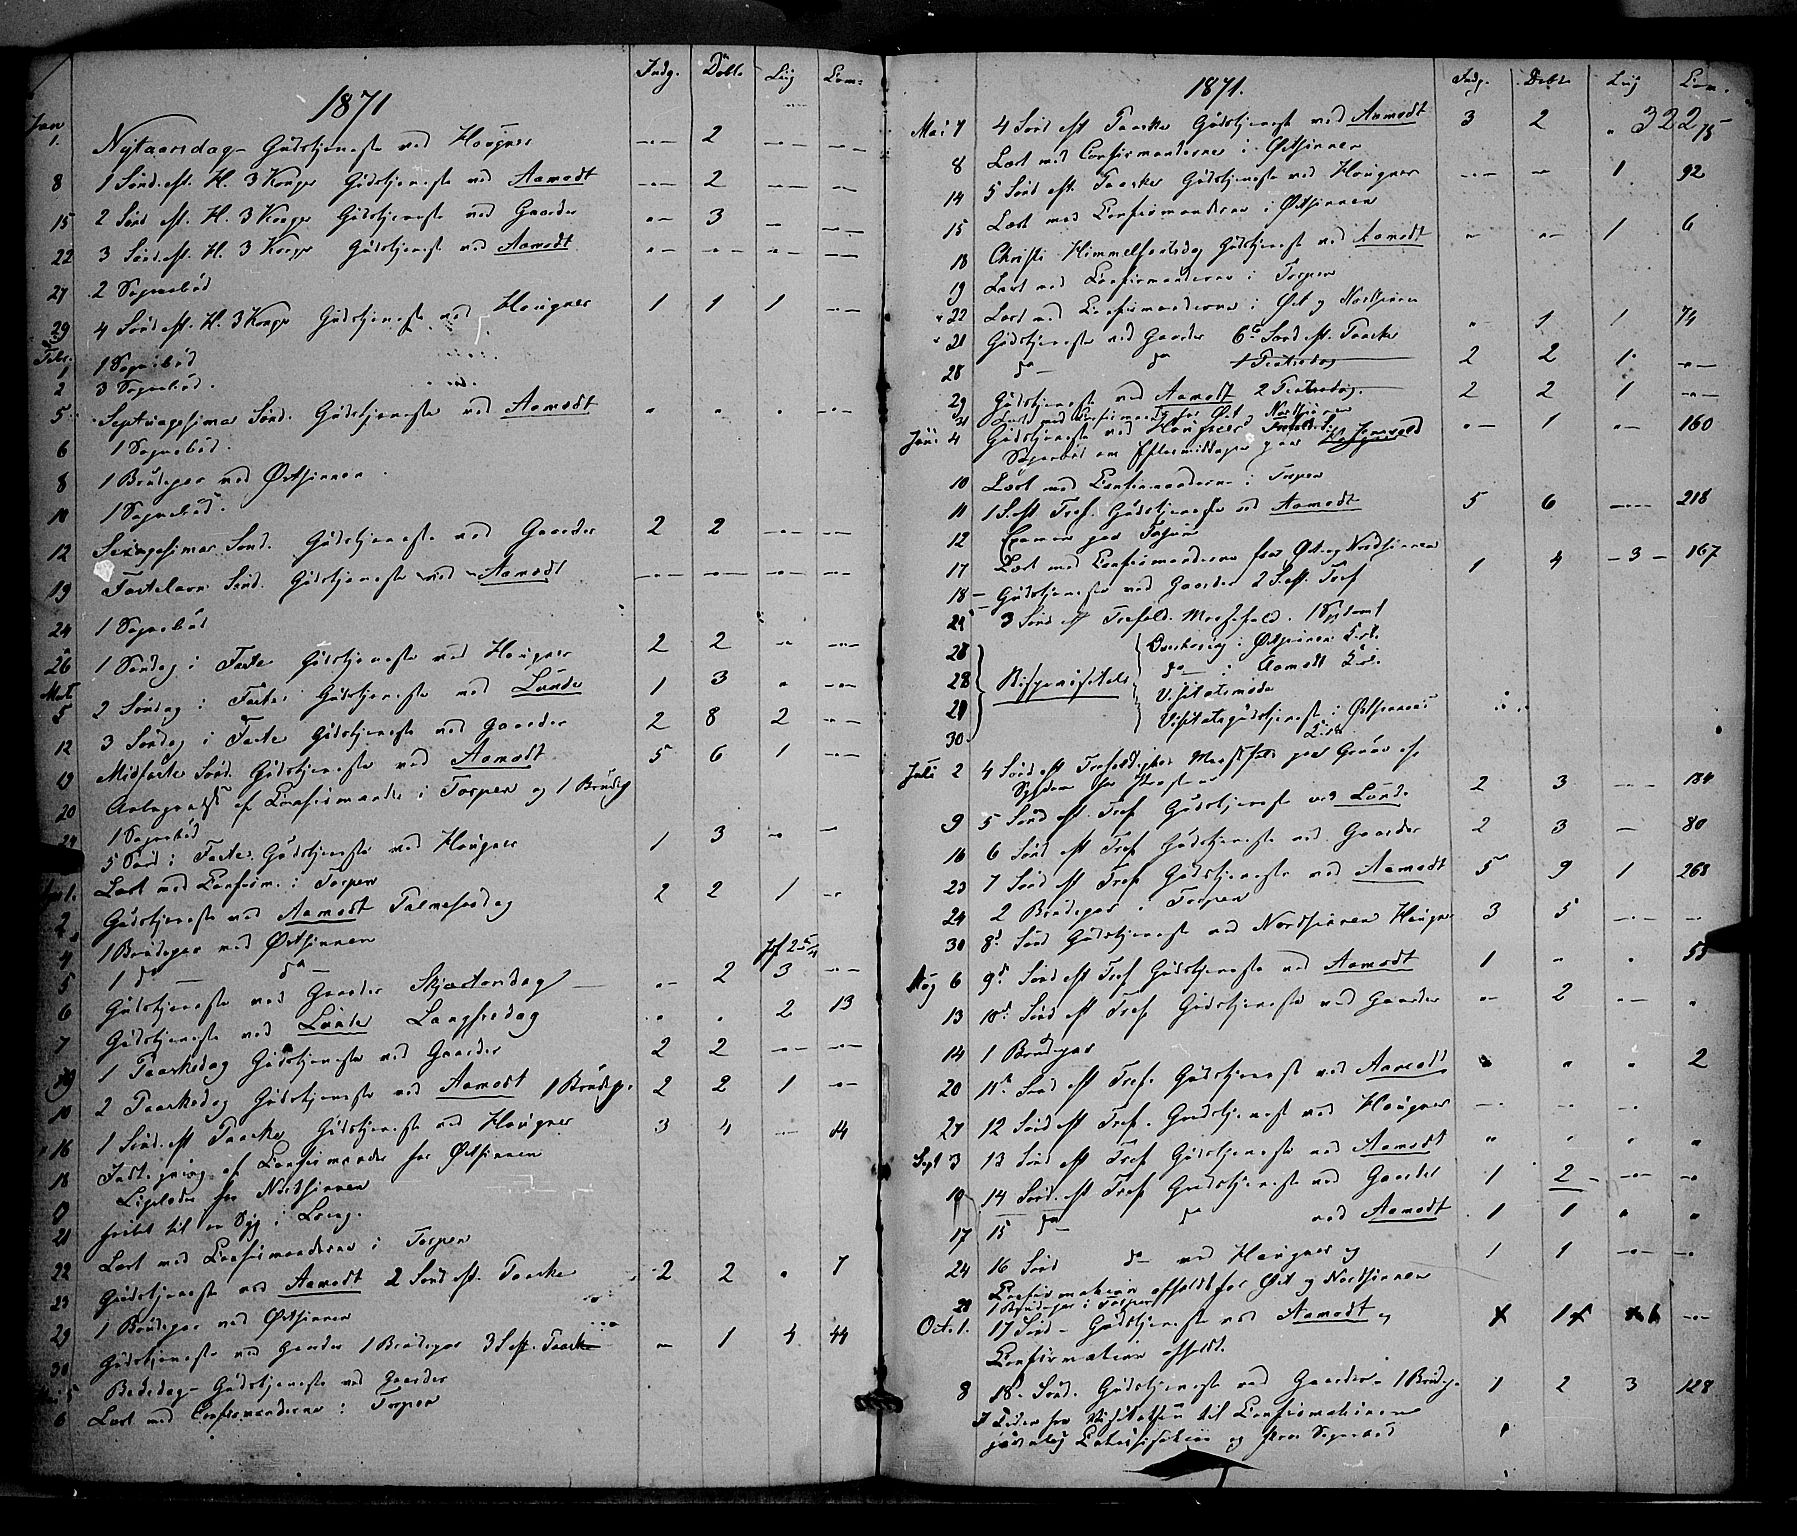 1871
Indg. Døbte Liig Com:
Jan
1. Nytaarsdag Gudstjeneste ved Hougner -"- 2 -"- -"-
8 1 Sønd. eft. H. 3 Konger Gudstjeneste ved Aamodt -"- 2 -"- -"-
15 2 Sønd eft. H. 3 Konger Gudstjeneste ved Gaarder -"- 3 -"- -"-
22 3 Sønd. eft. H. 3 Konger Gudstjeneste ved Aamodt -"- -"- -"- -"-
27 2 Sognebud
29 4 Sønd. eft. H. 3 Konger Gudstjeneste ved Hougner 1 1 1 -"-
Febr. 1 1 Sognebud
2 3 Sognebud.
5 Septuagesimæ Sønd. Gudstjeneste ved Aamodt " " " -"-
6 1 Sognebud.
8 1 Brudepar ved Østsinnen
10 1 Sognebud.
12 Sexagesimæ Sønd. Gudstjeneste ved Gaarder 2 2 -"- -"-
19 Fastelavn Sønd. Gudstjeneste ved Aamodt -"- -"- -"- -"-
24 1 Sognebud
26 1 Søndag i Faste Gudstjeneste ved Hougner 2 2 " -"-
Mart 5 2 Søndag i Faste Gudstjeneste ved Lunde 1 3 " -"-
12 3 Søndag i Faste Gudstjeneste ved Gaarder 2 8 2 -"-
19 Midfaste Sønd. Gudstjeneste ved Aamodt 5 6 1 -"-
20 Antegnelse af Confirmander i Torpen og 1 Brudep
1 Sognebud
5 Sønd i Faste. Gudstjeneste ved Hougner 1 3 -"- -"-
1. Læst med Confirm. i Torpen
2 Gudstjeneste ved Aamodt Palmesøndag 2 2 1 -"-
4 1 Brudepar ved Østsinnen
5 1 do do
6 Gudstjeneste ved Gaarder Skjærtorsdag -"- 2 3 -"-
7 Gudstjeneste ved Lunde Langfredag " " 2 13
9 1 Paaskedag Gudstjeneste ved Gaarder 2 2 -"- -"-
10 2 Paaskedag Gudstjeneste ved Aamodt 1 Brudep. 2 2 1 -"-
16 1 Sønd. eft Paaske Gudstjeneste ved Hougner 3 4 -"- 14
18 Indtegning af Confirmander for Østsinnen
Ligeledes for Nordsinnen
21
Læst med Confirmanderne i Torpen
22
23 Gudstjeneste ved Aamodt 2 Sønd. eft. Paaske 2 2 " 7
29 1 Brudepar ved Østsinnen
30 Gudstjeneste ved Gaarder 1 Brudepar 3 S. eft. Paaske -"- 1 4 44
5 Bededag Gudstjeneste ved Gaarder
6 Læst med Confirmanderne i Torpen
1871.
Indg. Døbte Liig Com.
322
Mai 7 4 Sønd eft Paaske Gudstjeneste ved Aamodt 3 2 " 75
8 Læst med Confirmanderne i Østsinnen
14 5 Sønd eft. Paaske Gudstjeneste ved Hougner -"- -"- 1 92
15 Læst med Confirmanderne i Østsinnen
18 Christi Himmelfartsdag Gudstjeneste ved Aamodt " -"- 1 6
19 Læst med Confirmanderne i Torpen
22 Læst med Confirmanderne i Øst og Nordsinnen
21 Gudstjeneste ved Gaarder 6te Sønd. eft Paaske "- 1 1 74
28 do do 1 Pintsedag 2 2 1 -"-
29 Gudstjeneste ved Aamodt 2 Pintsedag 2 2 1 -"-
31 Læst med Confirmander fra Øst og Nordsinnen
Juni 4 Gudstjeneste ved Hougner " 1 " 160
Sognebud om Eftermiddagen paa
10 Læst med Confirmanderne i Torpen
11 1 S. eft Tref. Gudstjeneste ved Aamodt 5 6 -"- 218
12 Examen paa
17 Læst med Confirmanderne fra Øst og Nordsinnen
18 Gudstjeneste ved Gaarder 2 S. eft. Tref 1 4 3 167
25 3 Sønd eft Trefold. Messefald.
28 Bispevisitats Overhøring i Østsinnen Kirke
28 do i Aamodt Kirke
29 Visitatsmøde
30. Visitatsgudstjeneste i Østsinnens Kirke
Juli 2 4 Sønd eft Trefoldighed Messefald paa Grund af
Sygdom hos Præsten
9 5 Sønd eft. Tref Gudstjeneste ved Lunde 2 3 -"- 184
16 6 Sønd eft Tref Gudstjeneste ved Gaarder 2 3 - 80
23 7 Sønd eft Tref Gudstjeneste ved Aamodt 5 9 1 268
24 2 Brudepar i Torpen
30 8d Sønd Gudstjeneste ved Nordsinnen Hougner 3 5 -"- -"-
Aug 6 9d Sønd eft Tref Gudstjeneste ved Aamodt 1 " " 55
13 10d. Sønd eft Tref Gudstjeneste ved Gaarder "- 2 "- "
14 1 Brudepar
20 11d. Sønd eft Tref. Gudstjeneste ved Aamodt " " " 2
27 12 Sønd eft Tref. Gudstjeneste ved Hougner -"- -"- -"-
Sept 3 13 Sønd eft Tref Gudstjeneste ved Aamodt " " " "
10 14 Sønd. eft Tref Gudstjeneste ved Gaarder 1 2 -"- -"-
17 15 do do ved Aamodt 1 1 " "
24 16 Sønd do ved Hougner og 1 1 -"- -"-
Confirmation afholdt for Øst og Nordsinnen
28 1 Brudepar i Torpen
Oct. 1. 17 Sønd - Gudstjeneste ved Aamodt og
Confirmation afholdt.
8 18. Sønd. Gudstjeneste ved Gaarder 1 Brudep. 1 2 3 128
I Tiden fra Visitatsen til Confirmationen
jævnlig Catechisation og flere Sognebud